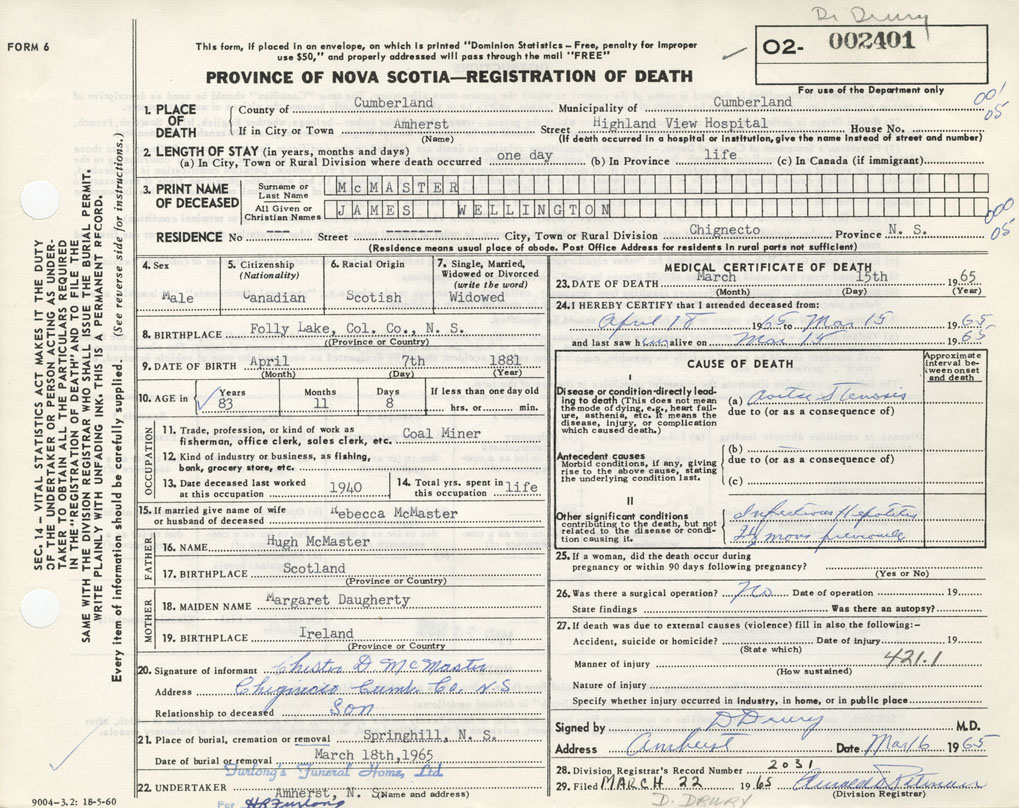 Dr Drury
FORM 6
This form, if placed in an envelope, on which is printed "Dominion Statistics – Free, penalty for improper
use $50," and properly addressed will pass through the mail "FREE"
O2- 002401
PROVINCE OF NOVA SCOTIA—REGISTRATION OF DEATH
For use of the Department only
001
05
1. PLACE OF DEATH
County of Cumberland Municipality of Cumberland
If in City or Town Amherst Street Highland View Hospital House No.
(Name) (If death occurred in a hospital or institution, give the name instead of street and number)
2. LENGTH OF STAY (in years, months and days)
(a) In City, Town or Rural Division where death occurred one day (b) In Province life (c) In Canada (if immigrant)
3. PRINT NAME OF DECEASED
Surname or Last Name McMASTER
All Given or Christian Names JAMES WELLINGTON
000
05
RESIDENCE No --- Street -------- City, Town or Rural Division Chignecto Province N. S.
(Residence means usual place of abode. Post Office Address for residents in rural parts not sufficient)
4. Sex
Male
5. Citizenship
(Nationality)
Canadian
6. Racial Origin
Scotish
7. Single, Married,
Widowed or Divorced
(write the word)
Widowed
8. BIRTHPLACE Folly Lake, Col. Co., N. S.
(Province or Country)
9. DATE OF BIRTH April 7th 1881
(Month) (Day) (Year)
10. AGE in Years Months Days If less than one day old
83 11 8 hrs. or min.
OCCUPATION
11. Trade, profession, or kind of work as
fisherman, office clerk, sales clerk, etc. Coal Miner
12. Kind of industry or business, as fishing,
bank, grocery store, etc.
13. Date deceased last worked
at this occupation 1940
14. Total yrs. spent in
this occupation life
15. If married give name of wife
or husband of deceased Rebecca McMaster
FATHER
16. NAME Hugh McMaster
17. BIRTHPLACE Scotland
(Province or Country)
MOTHER
18. MAIDEN NAME Margaret Daugherty
19. BIRTHPLACE Ireland
(Province or Country
20. Signature of informant Chester D McMaster
Address Chignecto Cumb. Co. N.S
Relationship to deceased Son
21. Place of burial, cremation or removal Springhill, N. S.
Date of burial or removal March 18th, 1965
Furlong's Funeral Home, Ltd
22. UNDERTAKER Amherst, N. S.
(Name and address)
Per H R Furlong
9004-3.2: 18-5-60
MEDICAL CERTIFICATE OF DEATH
23. DATE OF DEATH March 15th 1965
(Month) (Day) (Year)
24. I HEREBY CERTIFY that I attended deceased from:
April 18 1965 to Mar 15 1965
and last saw him alive on Mar 14 1965
CAUSE OF DEATH
Approximate interval between onset and death
I
Disease or condition directly leading to death (This does not mean
the mode of dying, e.g., heart failure, asthenia, etc. It means the
disease, injury, or complication
which caused death.)
(a) Aortic Stenosis
due to (or as a consequence of)
Antecedent causes
Morbid conditions, if any, giving
rise to the above cause, stating
the underlying condition last.
(b)
due to (or as a consequence of)
(c)
II
Other significant conditions
contributing to the death, but not
related to the disease or condition causing it.
Infectious Hepatitis
mons previously
25. If a woman, did the death occur during
pregnancy or within 90 days following pregnancy?
(Yes or No)
26. Was there a surgical operation? No Date of operation 19
State findings Was there an autopsy?
27. If death was due to external causes (violence) fill in also the following:-
Accident, suicide or homicide? Date of injury 19
(State which)
Manner of injury 421.1
(How sustained)
Nature of injury
Specify whether injury occurred in Industry, in home, or in public place
Signed by D Drury M.D.
Address Amherst Date Mar 16 1965
28. Division Registrar's Record Number 2031
29. Filed MARCH 22 1965
(Division Registrar)
D. DRURY
SEC. 14 – VITAL STATISTICS ACT MAKES IT THE DUTY
OF THE UNDERTAKER OR PERSON ACTING AS UNDERTAKER TO OBTAIN ALL THE PARTICULARS REQUIRED
IN THE "REGISTRATION OF DEATH" AND TO FILE THE
SAME WITH THE DIVISION REGISTRAR WHO SHALL ISSUE THE BURIAL PERMIT.
WRITE PLAINLY WITH UNFADING INK. THIS IS A PERMANENT RECORD.
Every item of information should be carefully supplied. (See reverse side for instructions.)